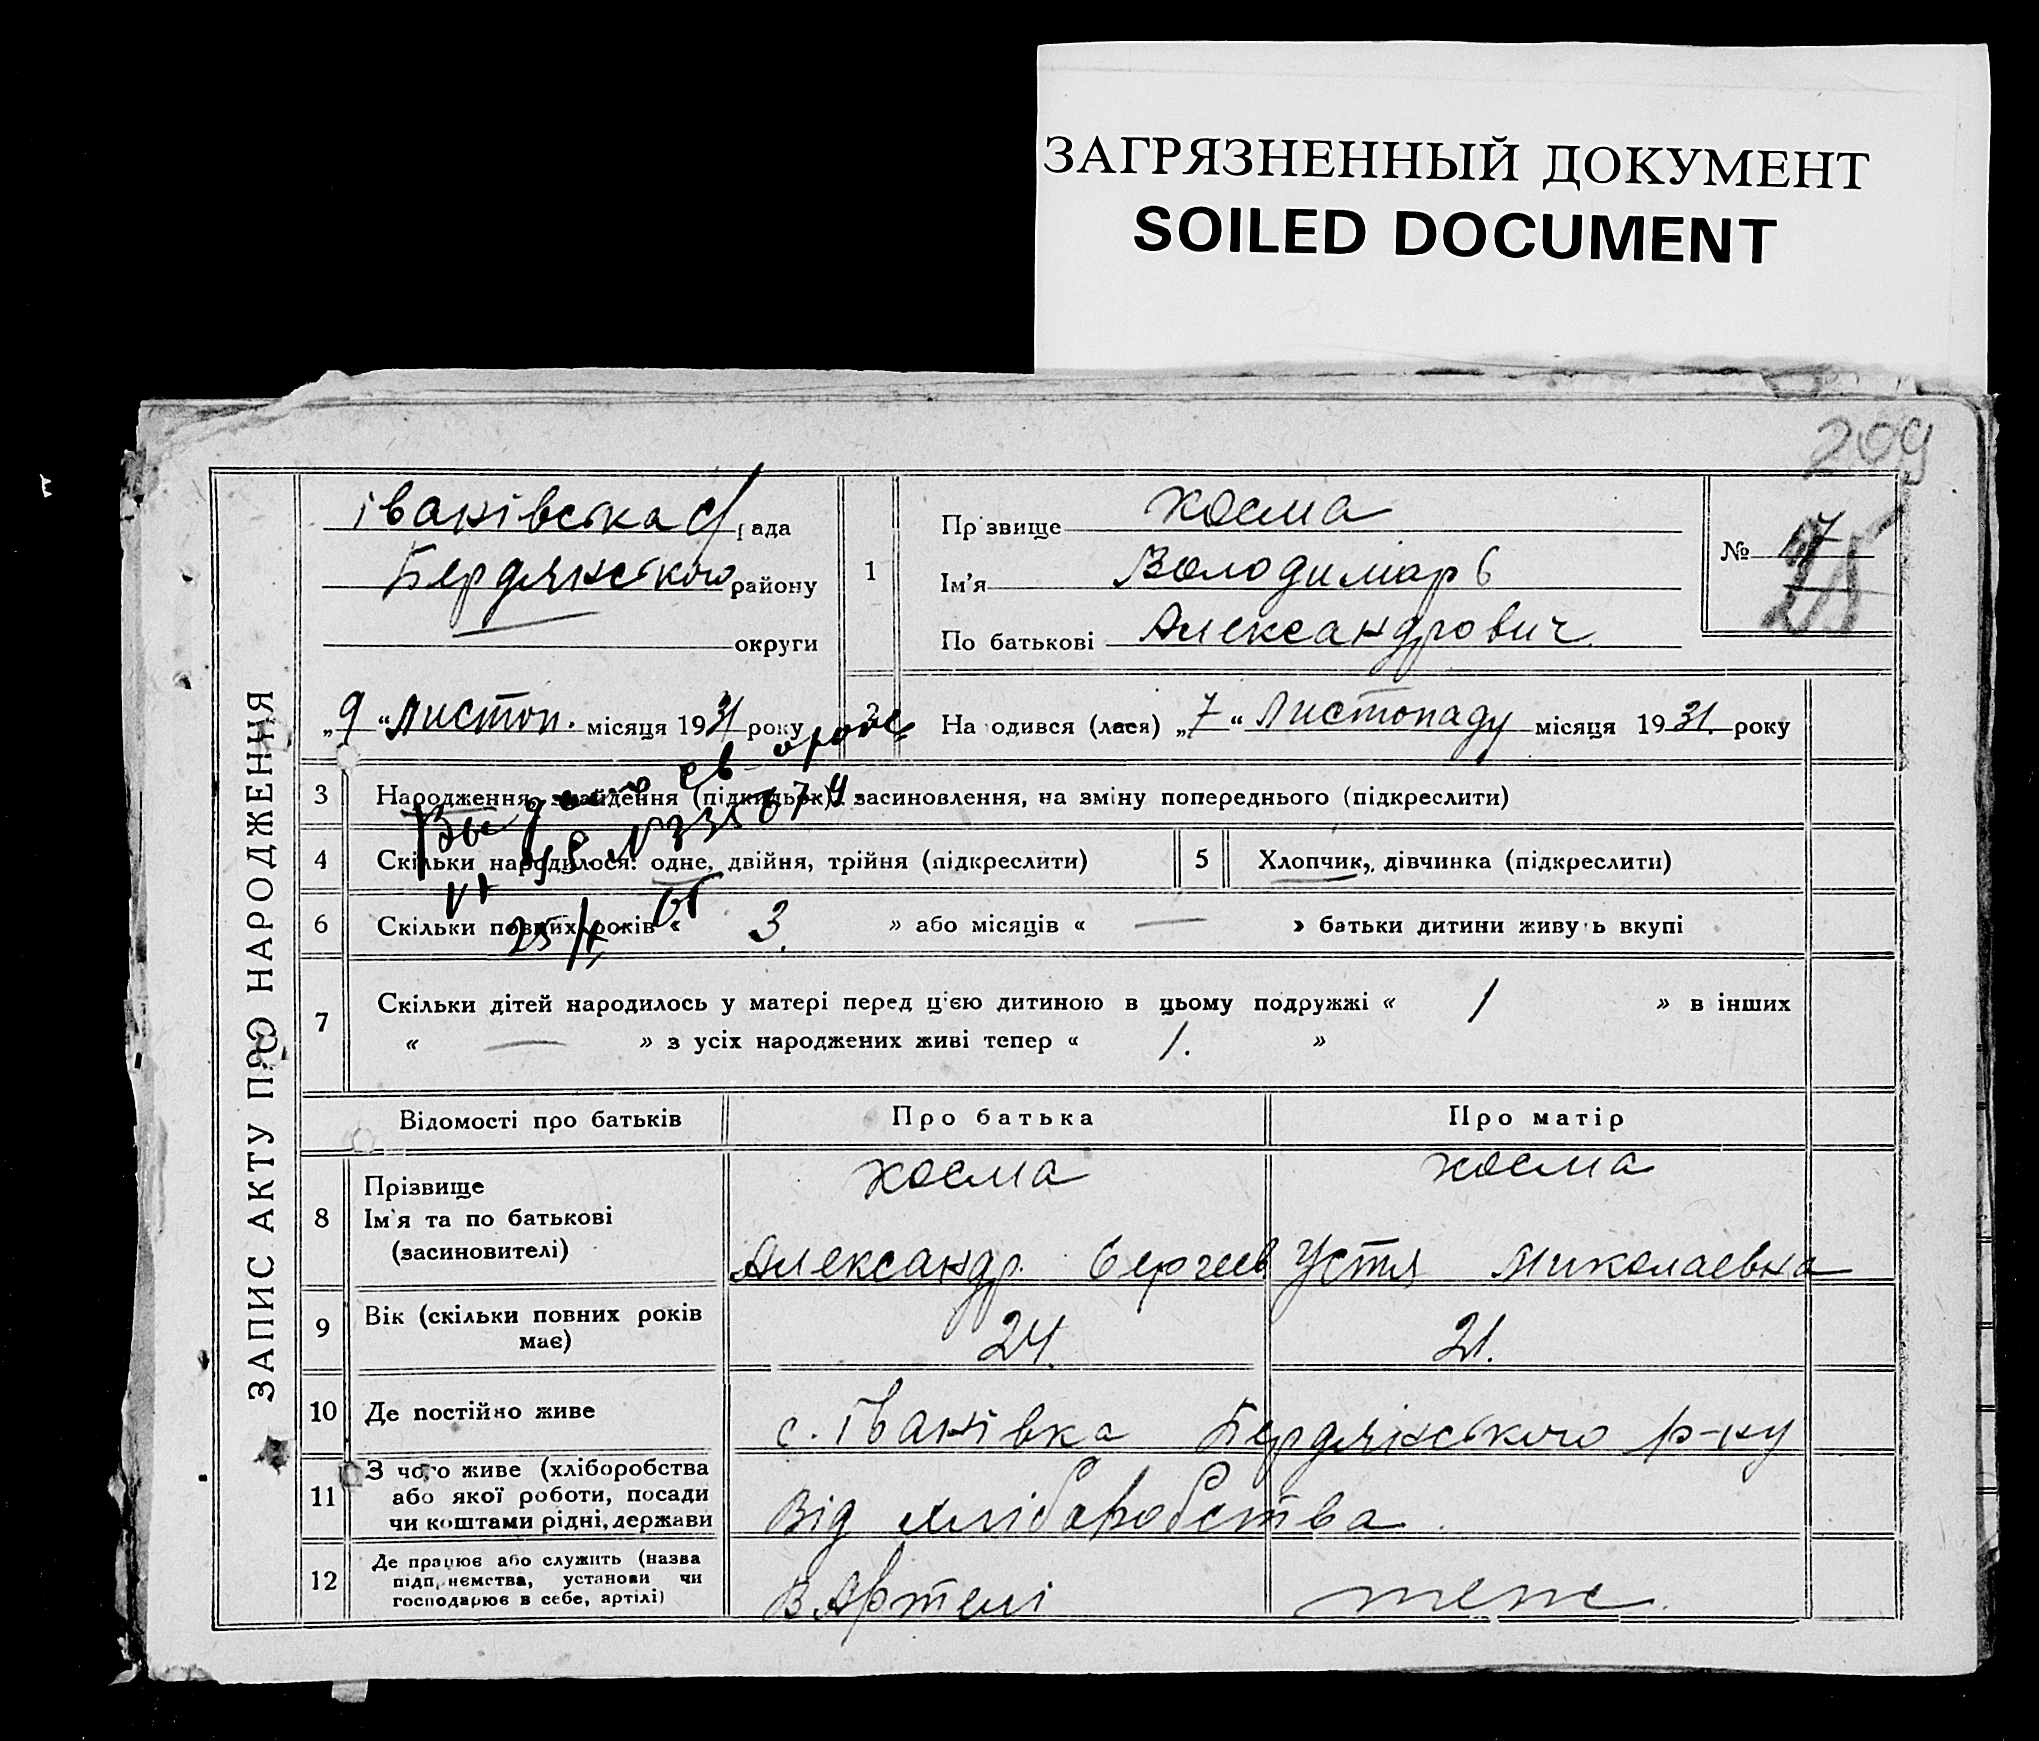 ЗАГРЯЗНЕННЫЙ ДОКУМЕНТ
SOILED DOCUMENT
209
ЗАПИС АКТУ ПРО НАРОДЖЕННЯ
Іванівська с/рада
Бердянського району
округи
„9“ Листоп. місяця 1931 року
1
Прізвище Косма
Ім'я Володимарь
По батькові Александрович
№ 7
2
Народився (лася) „7“ Листопаду місяця 1931. року
3 Народження, знайдення (підкидьок), засиновлення, на зміну попереднього (підкреслити)
4 Скільки народилося: одне, двійня, трійня (підкреслити)
5 Хлопчик, дівчинка (підкреслити)
6 Скільки повних років « 3. » або місяців « — » батьки дитини живуть вкупі
7 Скільки дітей народилось у матері перед цією дитиною в цьому подружжі « 1 » в інших
« — » з усіх народжених живі тепер « 1. »
Відомості про батьків Про батька Про матір
8 Прізвище Косма Косма
Ім'я та по батькові
(засиновителі) Александр Сергеев Устя Миколаевна
9 Вік (скільки повних років має) 24. 21.
10 Де постійно живе с. Іванівка Бердянського р-ну
11 З чого живе (хліборобства
або якої роботи, посади
чи коштами рідні, держави Від хліборобства.
12 Де працює або служить (назва
підприємства, установи чи
господарює в себе, артілі) В Артелі теж.